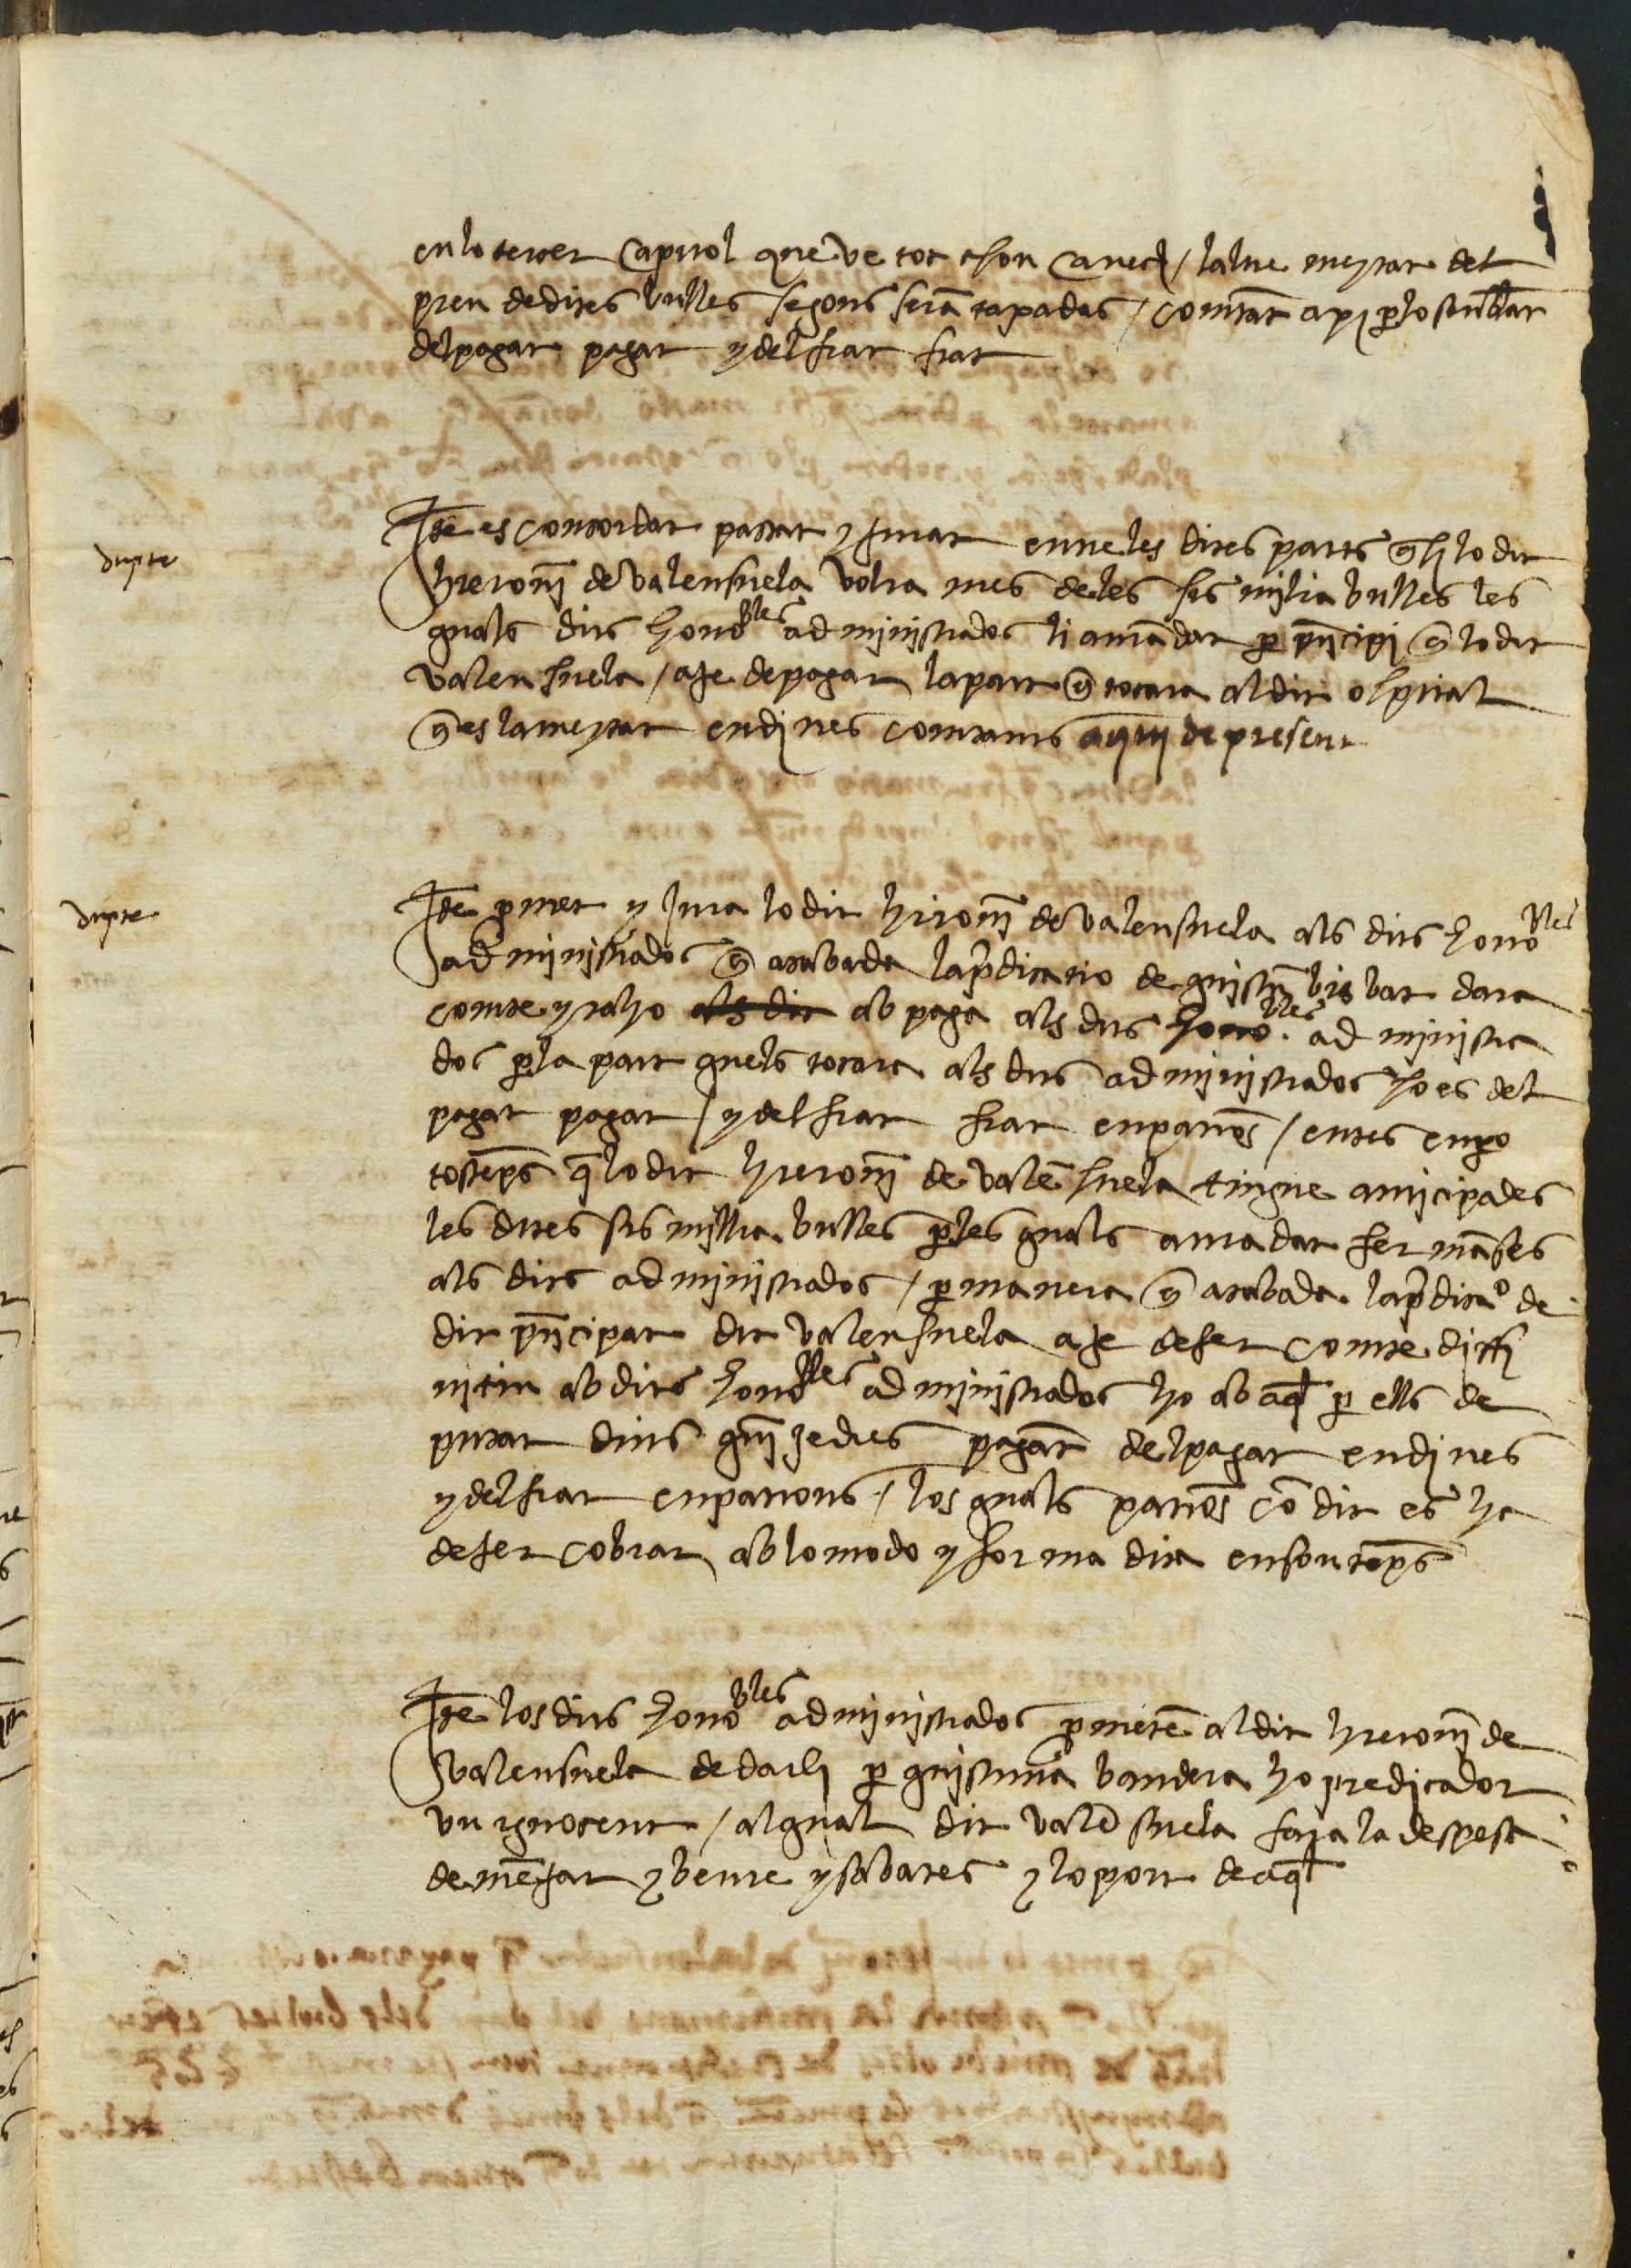 en lo tercer capitol que ve tot a son carrech / laltre meytat del
preu de dites bulles segons seran tapadas / comtant a xj per lo semblant
del pagat pagat y del fiat fiat
dupte
Ite es concordat pactat y jurat entre les dites parts q si lo dit
hieronj de valensuela volra mes de les sis milia bulles les
quals dits honobles administrados li auran dat per principi q lo dit
valensuela / aje de pagar la part q tocara al dit ospital
q es la meytat en dines comtants aqui de present
dupte
Ite promet y jura lo dit hieronj de valensuela als dits honobles
administrados q acabada la predicatio de quiscun bisbat dara
comte y raho als dit ab paga als dits honobles administra
dos per la part quels tocara als dits administrados ço es del
pagat pagat / y del fiat fiat en patros / entes empero
tostemps q lo dit hieronj de valesuela tingue anticipades
les dites sis millia bulles per les quals aura dat fermases
als dits administrados / per manera q acabada la predicao de
dit principat dit valensuela aje de fer comte diffi
nitiu ab dits honobles administrados ho ab aql per ells de
putat dins quinze dies pagat del pagat en dines
y del fiat en patrons / los quals patros co dit es ha
de fer cobrar ab lo modo y forma dita en son temps
Ite los dits honobles administrados prometen al dit hieronj de
valensuela de darli per quiscuna bandera ho predicador
vn ignocent / al qual dit valesuela faça la despesa
de mejar y beure y sabates y lo port de aql